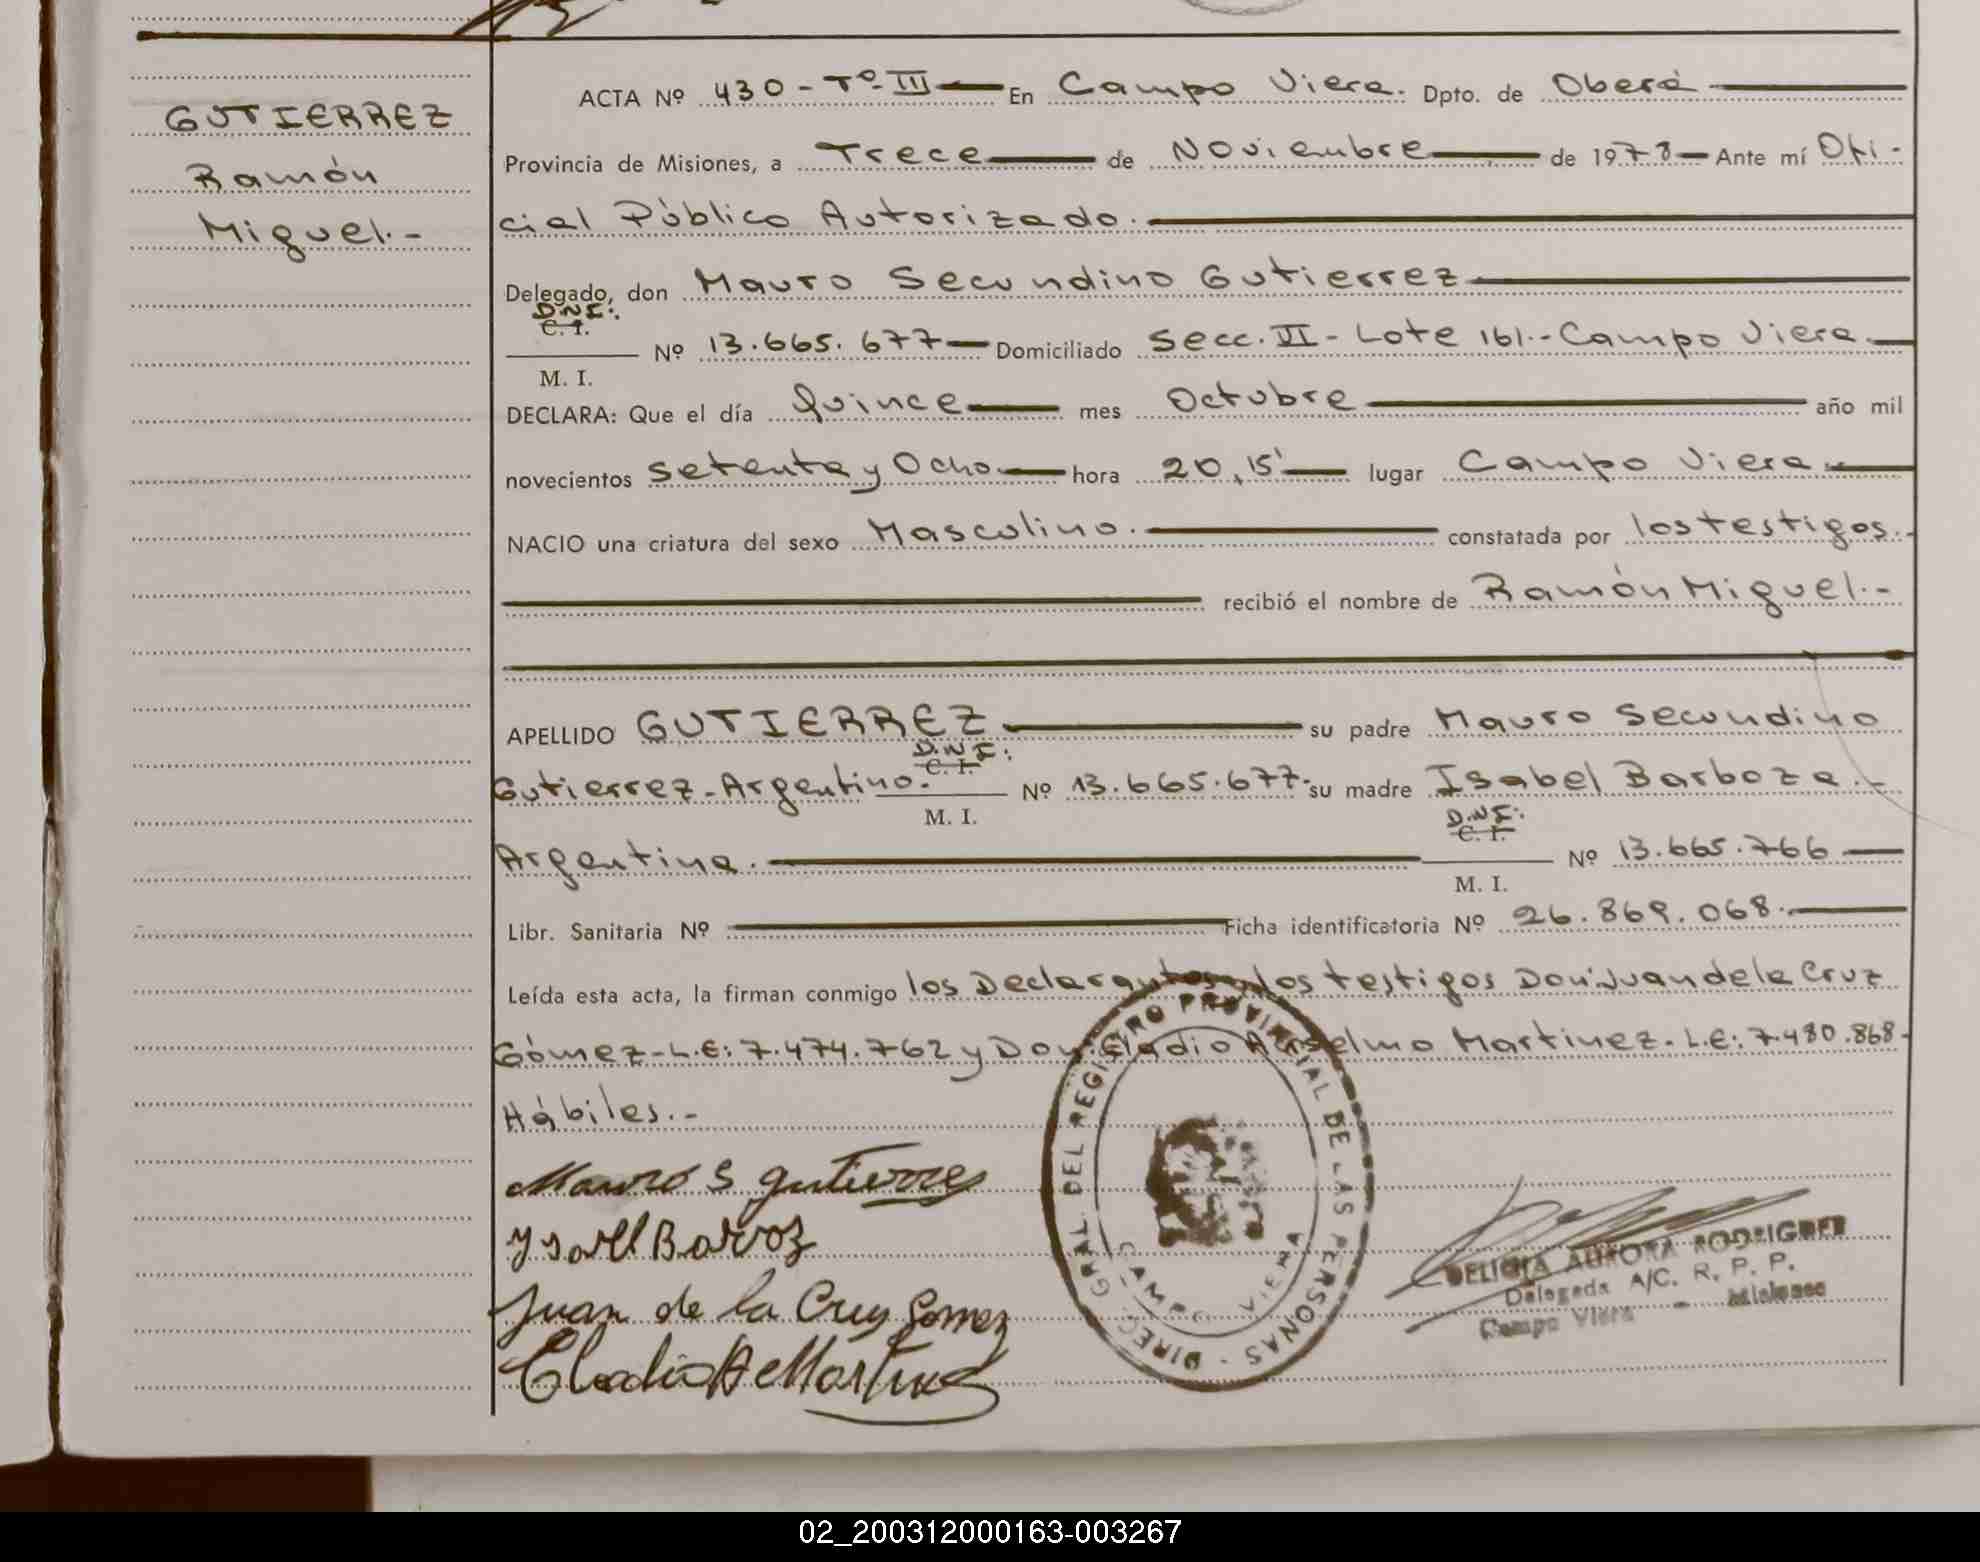 GUTIERREZ
Ramón
Miguel.-
ACTA Nº 430 - Tº III En Campo Viera. Dpto. de Oberá
Provincia de Misiones, a Trece de Noviembre de 1978 Ante mí Ofi-
cial Público Autorizado.
Delegado, don Mauro Secundino Gutierrez
D.N.I.:
C. I.
Nº 13.665.677 Domiciliado Secc. VI - Lote 161.- Campo Viera
M. I.
DECLARA: Que el día Quince mes Octubre año mil
novecientos setenta y Ocho hora 20,15' lugar Campo Viera
NACIO una criatura del sexo Masculino. constatada por los testigos.-
recibió el nombre de Ramón Miguel.-
APELLIDO GUTIERREZ su padre Mauro Secundino
D.N.I:
C. I.
Gutierrez - Argentino. Nº 13.665.677. su madre Isabel Barboza.-
M. I.
D.N.I:
C. I.
Argentina. Nº 13.665.766
M. I.
Libr. Sanitaria Nº Ficha identificatoria Nº 26.869.068.
Leída esta acta, la firman conmigo los Declarantes, los testigos Don: Juan de la Cruz
Gómez - L.E: 7.474.762 y Don: Eladio Anselmo Martinez. L.E: 7.480.868-
Hábiles.-
Mauro S gutierrez
Juan de la Cruz Gomez
Eladio A Martinez
DIREC. GRAL. DEL REGISTRO PROVINCIAL DE LAS PERSONAS -
CAMPO VIERA
DELICIA AURORA RODRIGUEZ
Delegada A/C. R. P. P.
Campo Viera - Misiones
02_200312000163-003267